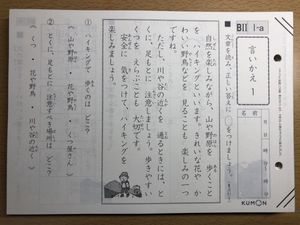 BII 1-a
言いかえ 1
名前
月 日
時 分
時 分
KUMON
文章を読み、正しい答えに◯をつけましょう。
自然を楽しみながら、山や野原を歩くこと
をハイキングといいます。きれいな花や、か
わいい野鳥などを見ることも、楽しみの一つ
ですね。
ただし、川や谷の近くを通るときには、と
くに、足もとに注意しましょう。歩きやすい
くつをえらぶことも大切です。
安全に気をつけて、ハイキングを
楽しみましょう。
① ハイキングで歩くのはどこ?
(山や野原・花や野鳥・くつ屋さん)
② とくに、足もとに注意すべき場所はどこ?
(くつ・花や野鳥・川や谷の近く)